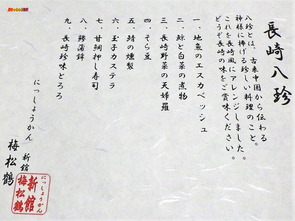 長崎八珍
八珍とは、古来中国から伝わる
神様に捧げる珍しい料理のこと。
これを長崎風にアレンジしました。
どうぞ長崎の味をご賞味ください。
一、地魚のエスカベッシュ
二、鯨と白菜の煮物
三、長崎野菜の天婦羅
四、そら豆
五、鯖の燻製
六、玉子カステラ
七、甘鯛押し寿司
八、
九、長崎珍味とろろ
にっしょうかん 新館
梅松鶴
にっしょうかん
新館
梅松鶴